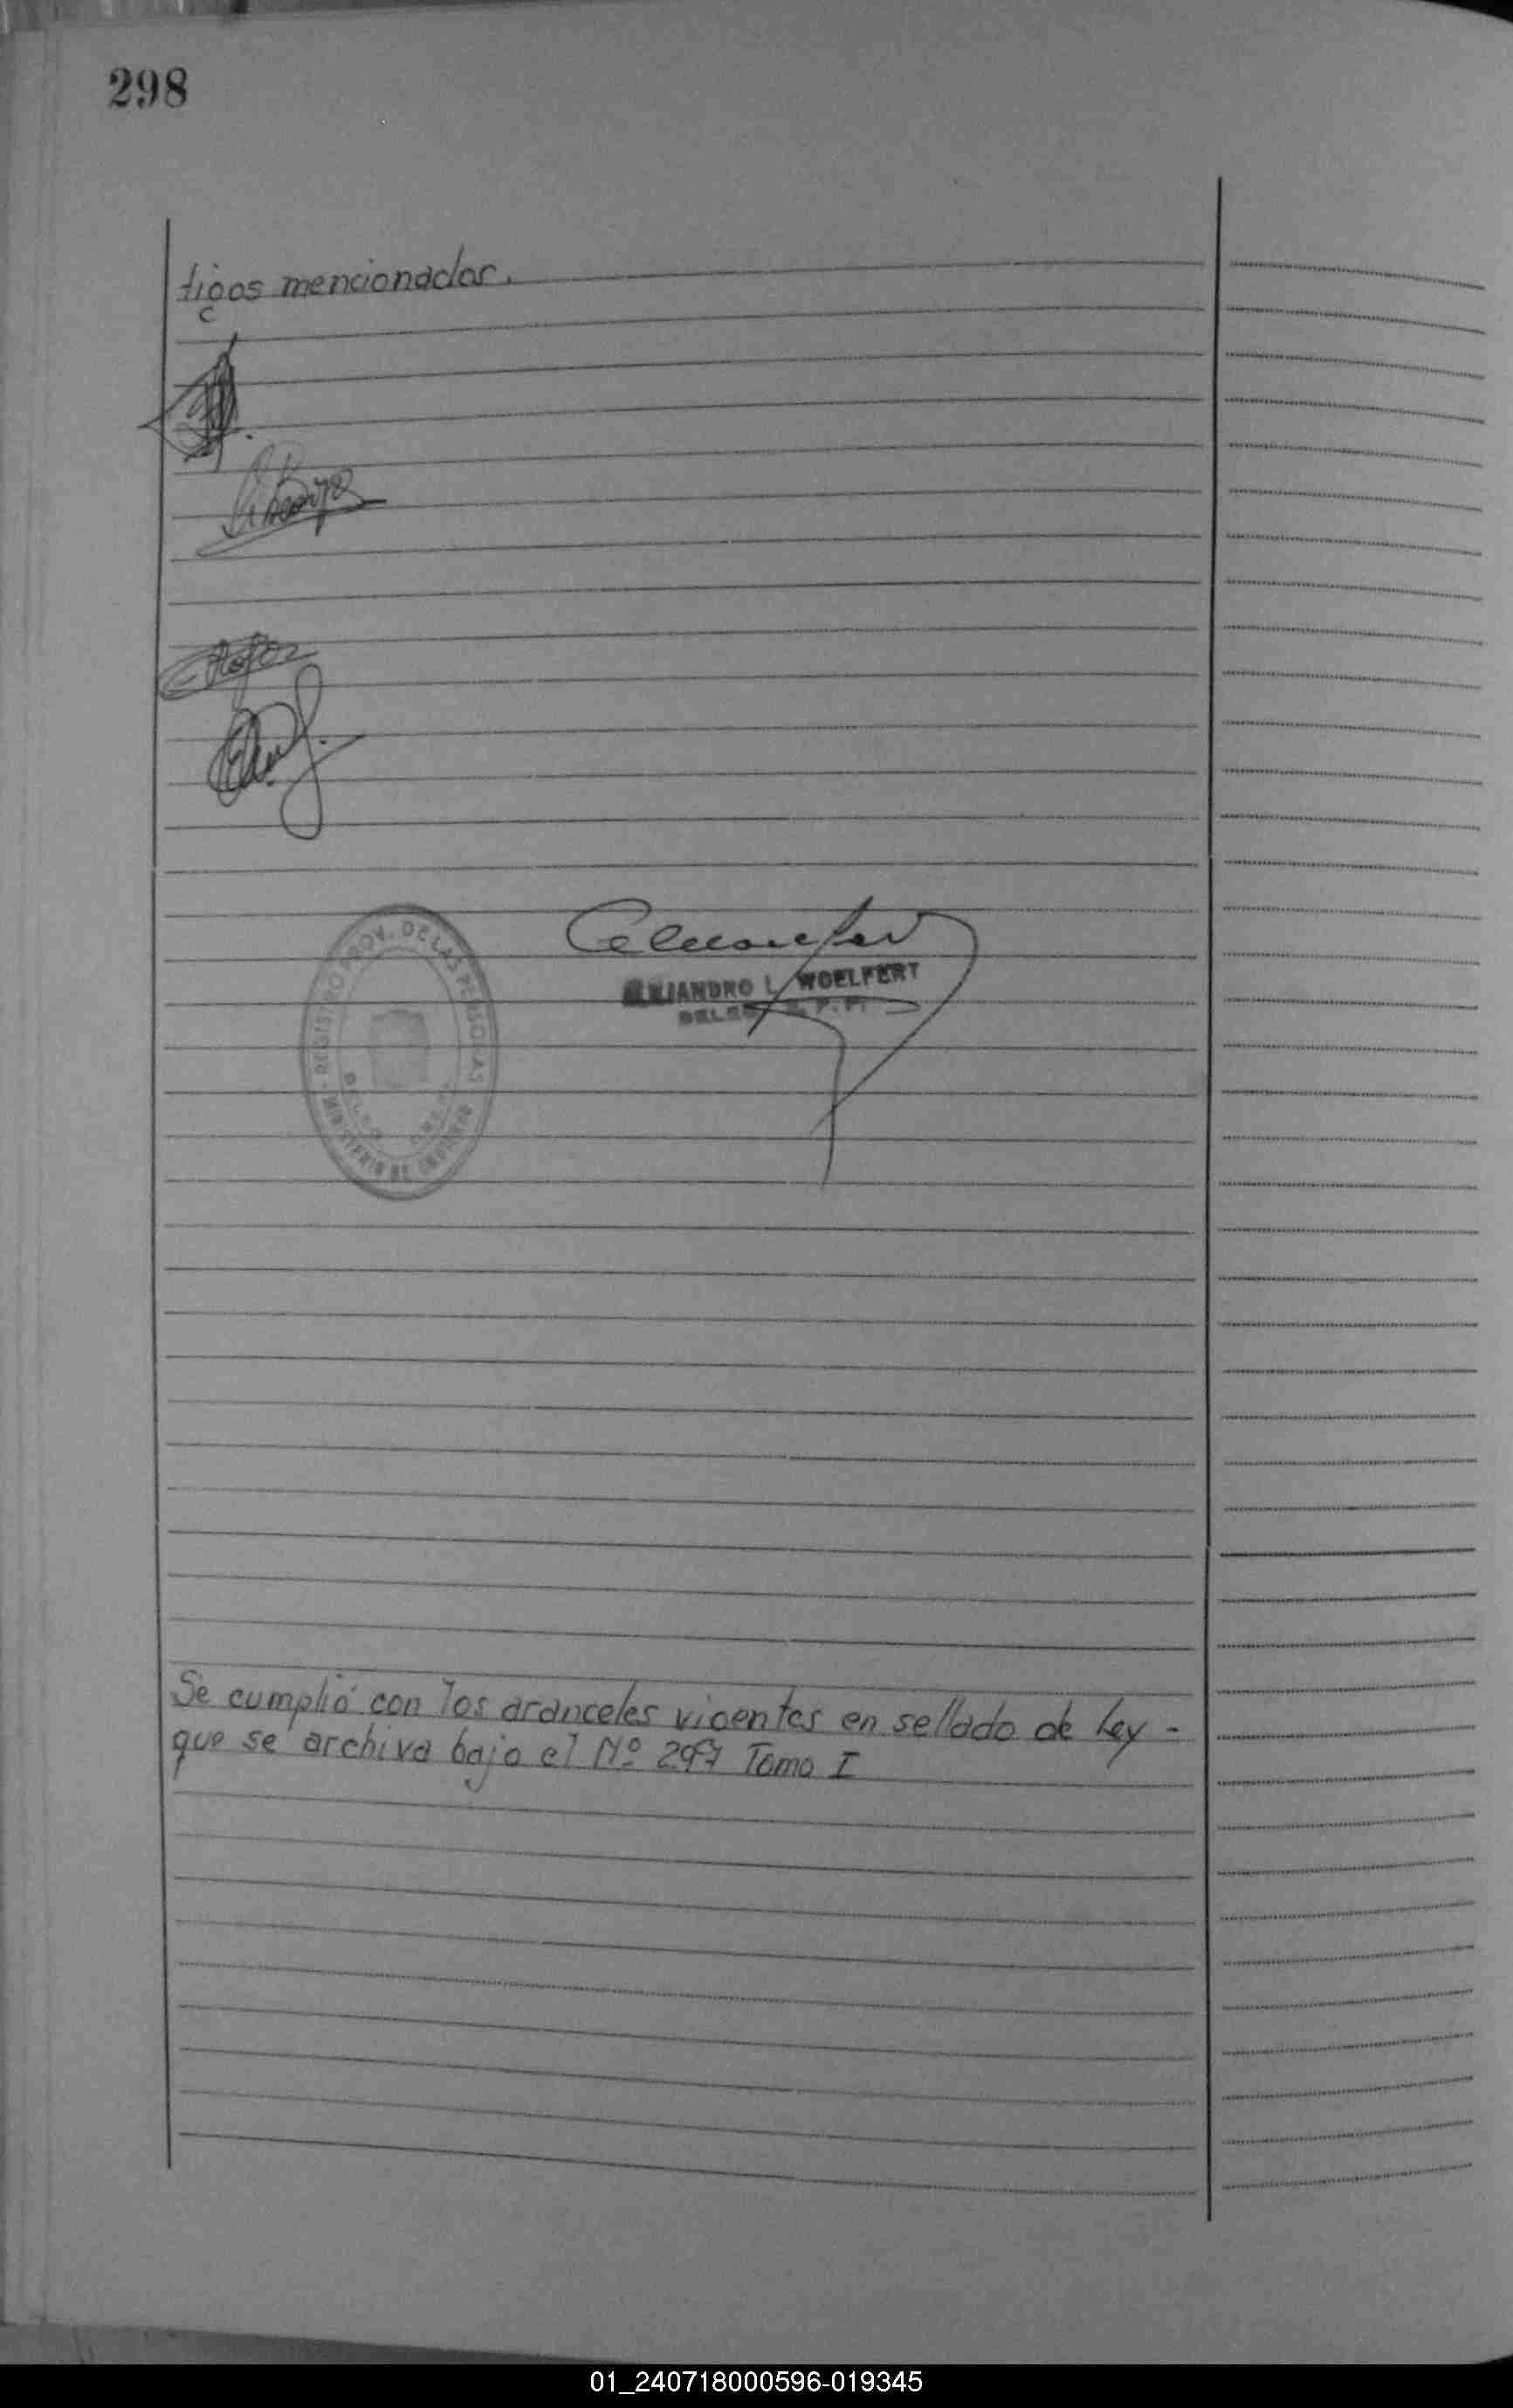 298
tigos mencionados.
REGISTRO PROV. DE LAS PERSONAS
MINISTERIO DE
ALEJANDRO L. WOELFERT
Se cumplió con los aranceles vigentes en sellado de Ley -
que se archiva bajo el Nº 297 Tomo I
01_240718000596-019345